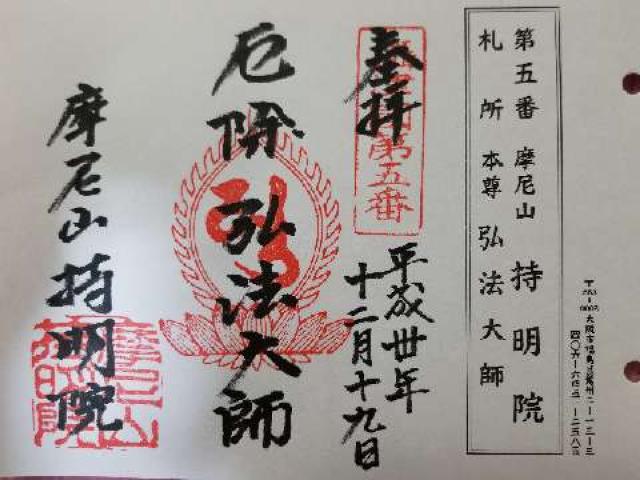 第五番 摩尼山 持明院
札所 本尊 弘法大師
奉拝
第五番
平成卅年
十二月十九日
厄除 弘法大師
摩尼山 持明院